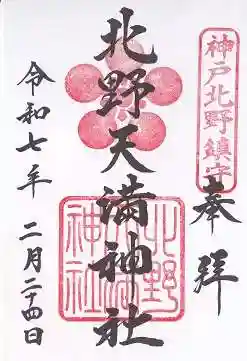 神戸北野鎮守
奉拝
北野天満神社
北野天満神社
令和七年二月二十四日